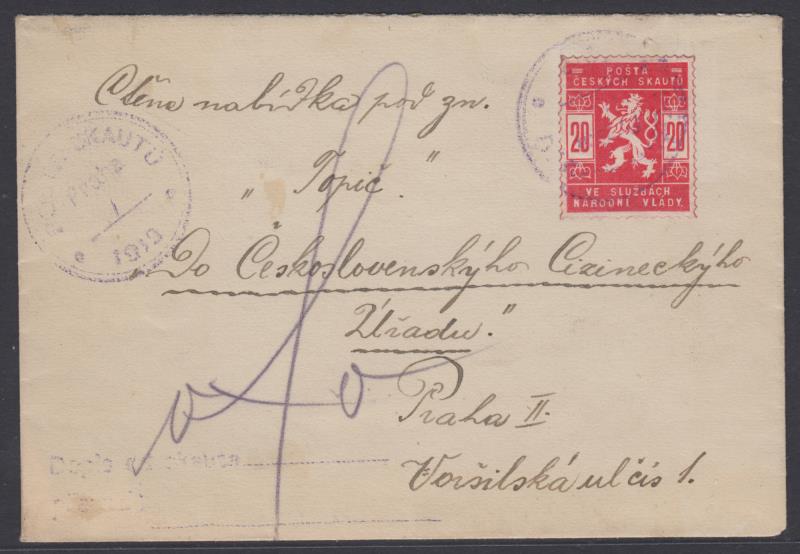 POŠTA
ČESKÝCH SKAUTŮ
20 20
VE SLUŽBÁCH
NÁRODNÍ VLÁDY.
Ctěna nabídka pod zn.
„Topič."
SKAUTŮ
Praha
1
Do Československýho Cizineckýho
Úřadu."
Praha II.
Voršilská ul čís 1.
Dopis